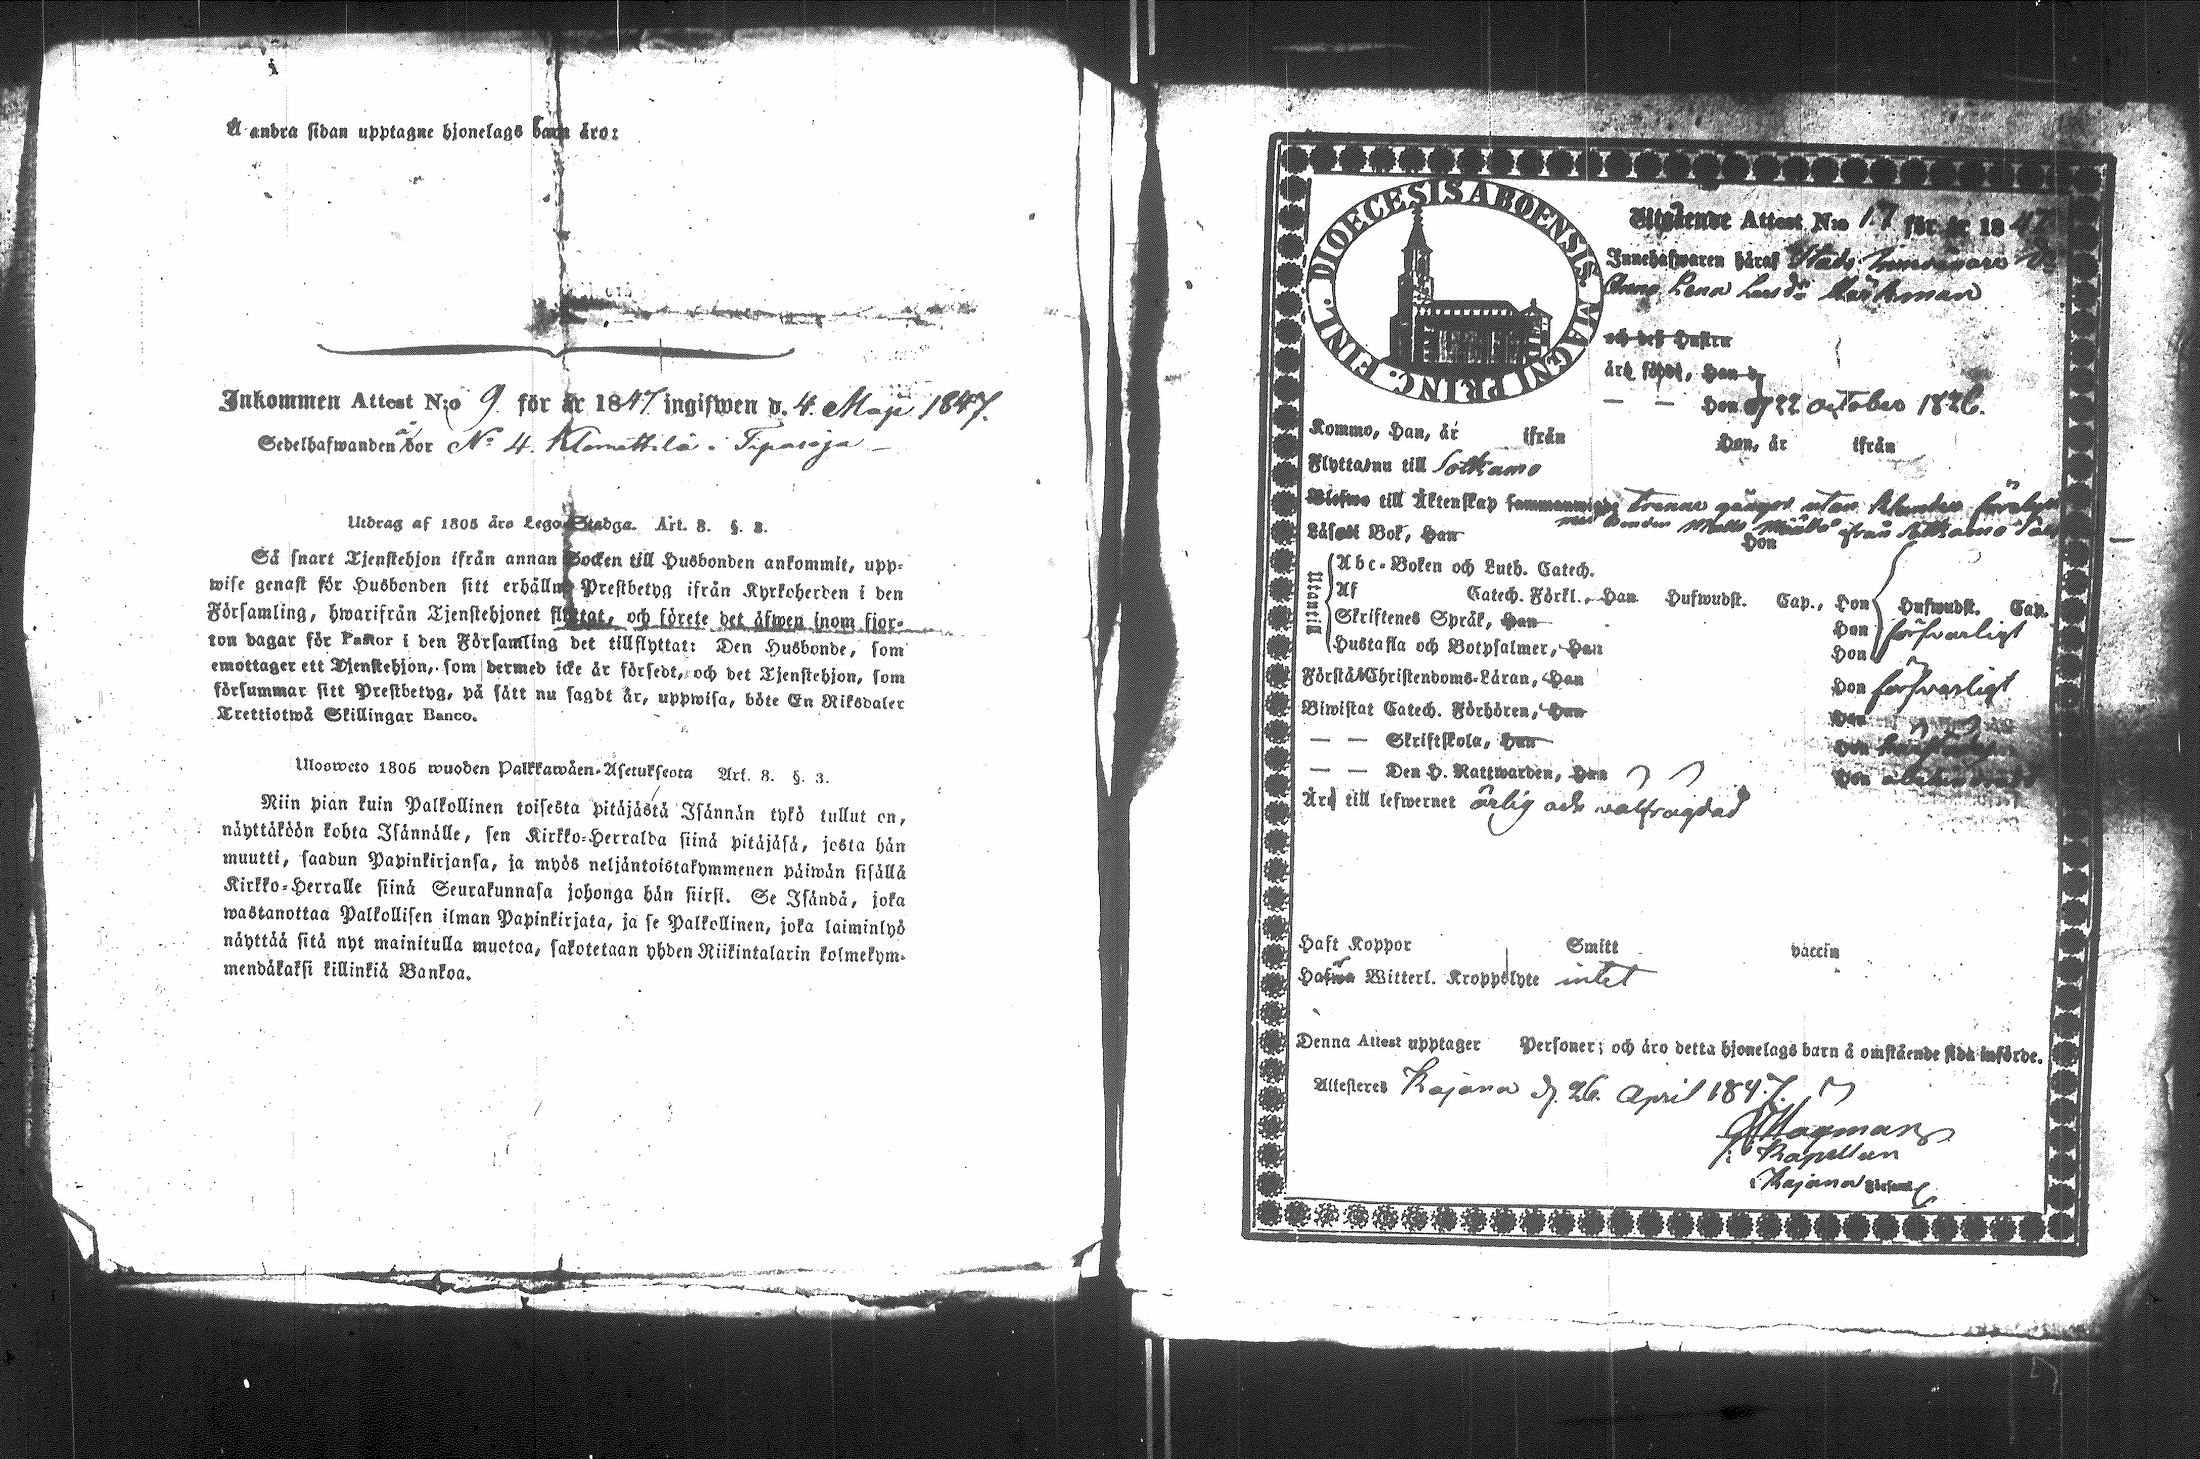 Å andra sidan upptagne hjonelags barn äro:
Inkommen Attest N:o 9 för år 1847 ingifwen d. 4 Maji 1847.
Sedelhafwanden bor No 4. Klemettilä i Tipasoja
Utdrag af 1805 års Lego-Stadga. Art. 8. §. 3.
Så snart Tjenstehjon ifrån annan Socken till Husbonden ankommit, upp-
wise genast för Husbonden sitt erhållne Prestbetyg ifrån Kyrkoherden i den
Församling, hwarifrån Tjenstehjonet flyttat, och förete det äfwen inom fjor-
ton dagar för Pastor i den Församling det tillflyttat: Den Husbonde, som
emottager ett Tjenstehjon, som dermed icke är försedt, och det Tjenstehjon, som
försummar sitt Prestbetyg, på sätt nu sagdt är, uppwisa, böte En Riksdaler
Trettiotwå Skillingar Banco.
Ulosweto 1805 wuoden Palkkawäen-Asetuksesta Art. 8. §. 3.
Niin pian kuin Palkollinen toisesta pitäjästä Isännän tykö tullut on,
näyttäköön kohta Isännälle, sen Kirkko-Herralda siinä pitäjäsä, josta hän
muutti, saadun Papinkirjansa, ja myös neljäntoistakymmenen päiwän sisällä
Kirkko-Herralle siinä Seurakunnasa johonga hän siirsi. Se Isändä, joka
wastanottaa Palkollisen ilman Papinkirjata, ja se Palkollinen, joka laiminlyö
näyttää sitä nyt mainitulla muotoa, sakotetaan yhden Riikintalarin kolmekym-
mendäkaksi killinkiä Bankoa.
DIOECESIS ABOENSIS. MAGNI PRINC. FINL.
Utgående Attest N:o 17 för år 1847
Innehafwaren häraf Stads
Anna Lena Larsdr
och dess Hustru
äro födde, Han d
— — Hon d. 22 october 1826.
Kommo, Han, år ifrån Hon, år ifrån
Flytta nu till Sotkamo
till Äktenskap
Läser i Bok, Han Hon
Utantill
Abc-Boken och Luth. Catech.
Af Catech. Förkl., Han Hufwudst. Cap., Hon Hufwudst. Cap.
Skriftenes Språk, Han Hon försvarligt
Hustafla och Botpsalmer, Han Hon
Förstå Christendoms-Läran, Han Hon försvarligt
Biwistat Catech. Förhören, Han Hon
— — Skriftskola, Han Hon
— — Den H. Nattwarden, Han Hon
Är till lefwernet ärlig och välfrägdad
Haft Koppor Smitt vaccin
Hafwa Witterl. Kroppslyte intet
Denna Attest upptager Personer; och äro detta hjonelags barn å omstående sida införde.
Attesteres Kajana d. 26. April 1847.
Kapellan
i Kajana Församl.